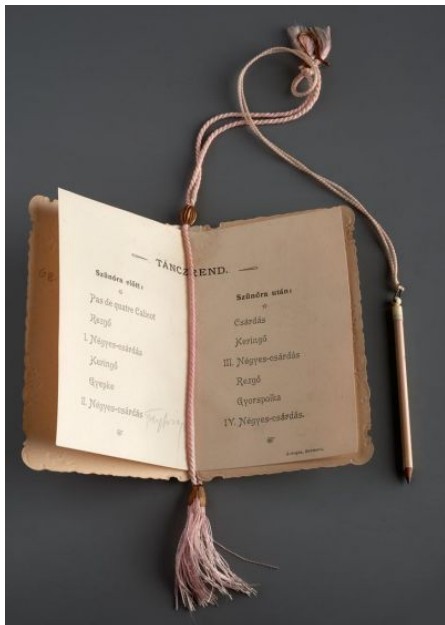 TÁNCZREND.
Szünóra előtt:
Pas de quatre Calicot
Rezgő
I. Négyes-csárdás
Keringő
Gyepke
II. Négyes-csárdás
Szünóra után:
Csárdás
Keringő
III. Négyes-csárdás
Rezgő
Gyorspolka
IV. Négyes-csárdás.